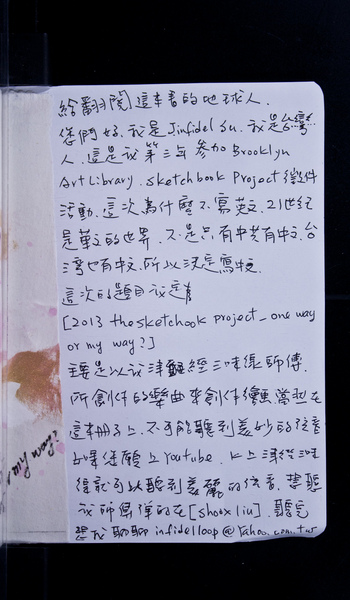 給翻閱這本書的地球人.
您們好.我是Jinfidel Su.我是台灣
人.這是我第三年參加Brooklyn
Art Library. sketchbook Project徵件
活動.這次為什麼不寫英文.21世紀
是華文的世界.不是只有中共有中文.台
灣也有中文.所以決定寫中文.
這次的題目我定為
[2013 the sketchook project_one way
or my way?]
主要是以我津輕三味線師傅.
所創作的樂曲來創作繪畫.當然在
這本冊子上.不可能聽到美妙的弦音
如果您願上Youtube. key上津輕三味
線就可以聽到美麗的弦音.想聽
我師傅彈的在[shoox liu].聽完
想找我聊聊infidelloop@Yahoo.com.tw